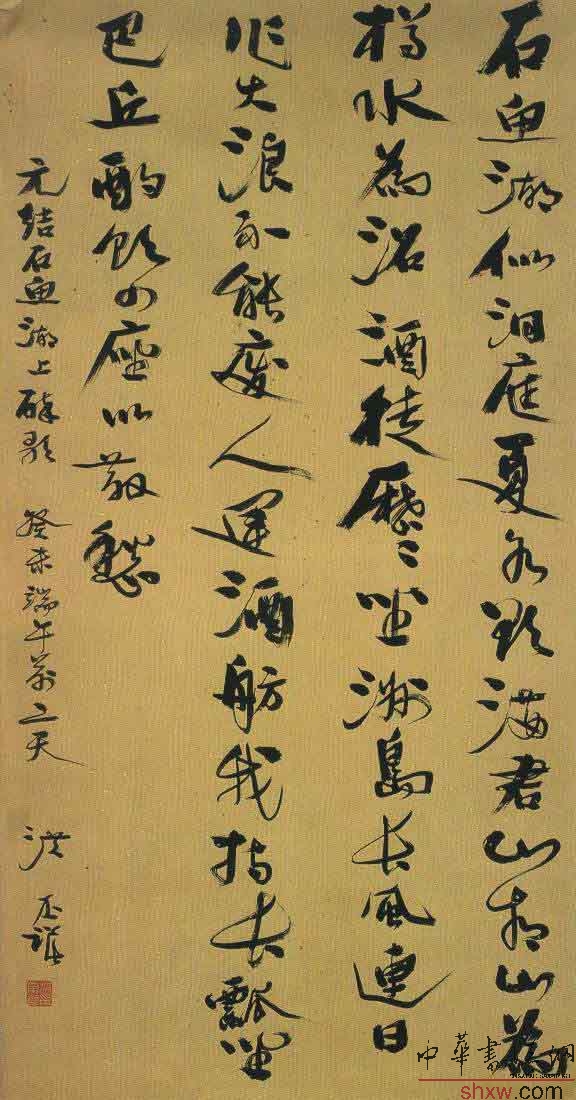 石魚湖似洞庭夏水欲滿君山青山為
樽水為沼酒徒歷〻坐洲島長風連日
作大浪不能廢人運酒舫我持長瓢坐
巴丘酌飲四座以散愁
元結石魚湖上醉歌 癸未端午前二天 洪丕謨
中華書法網
shxw.com